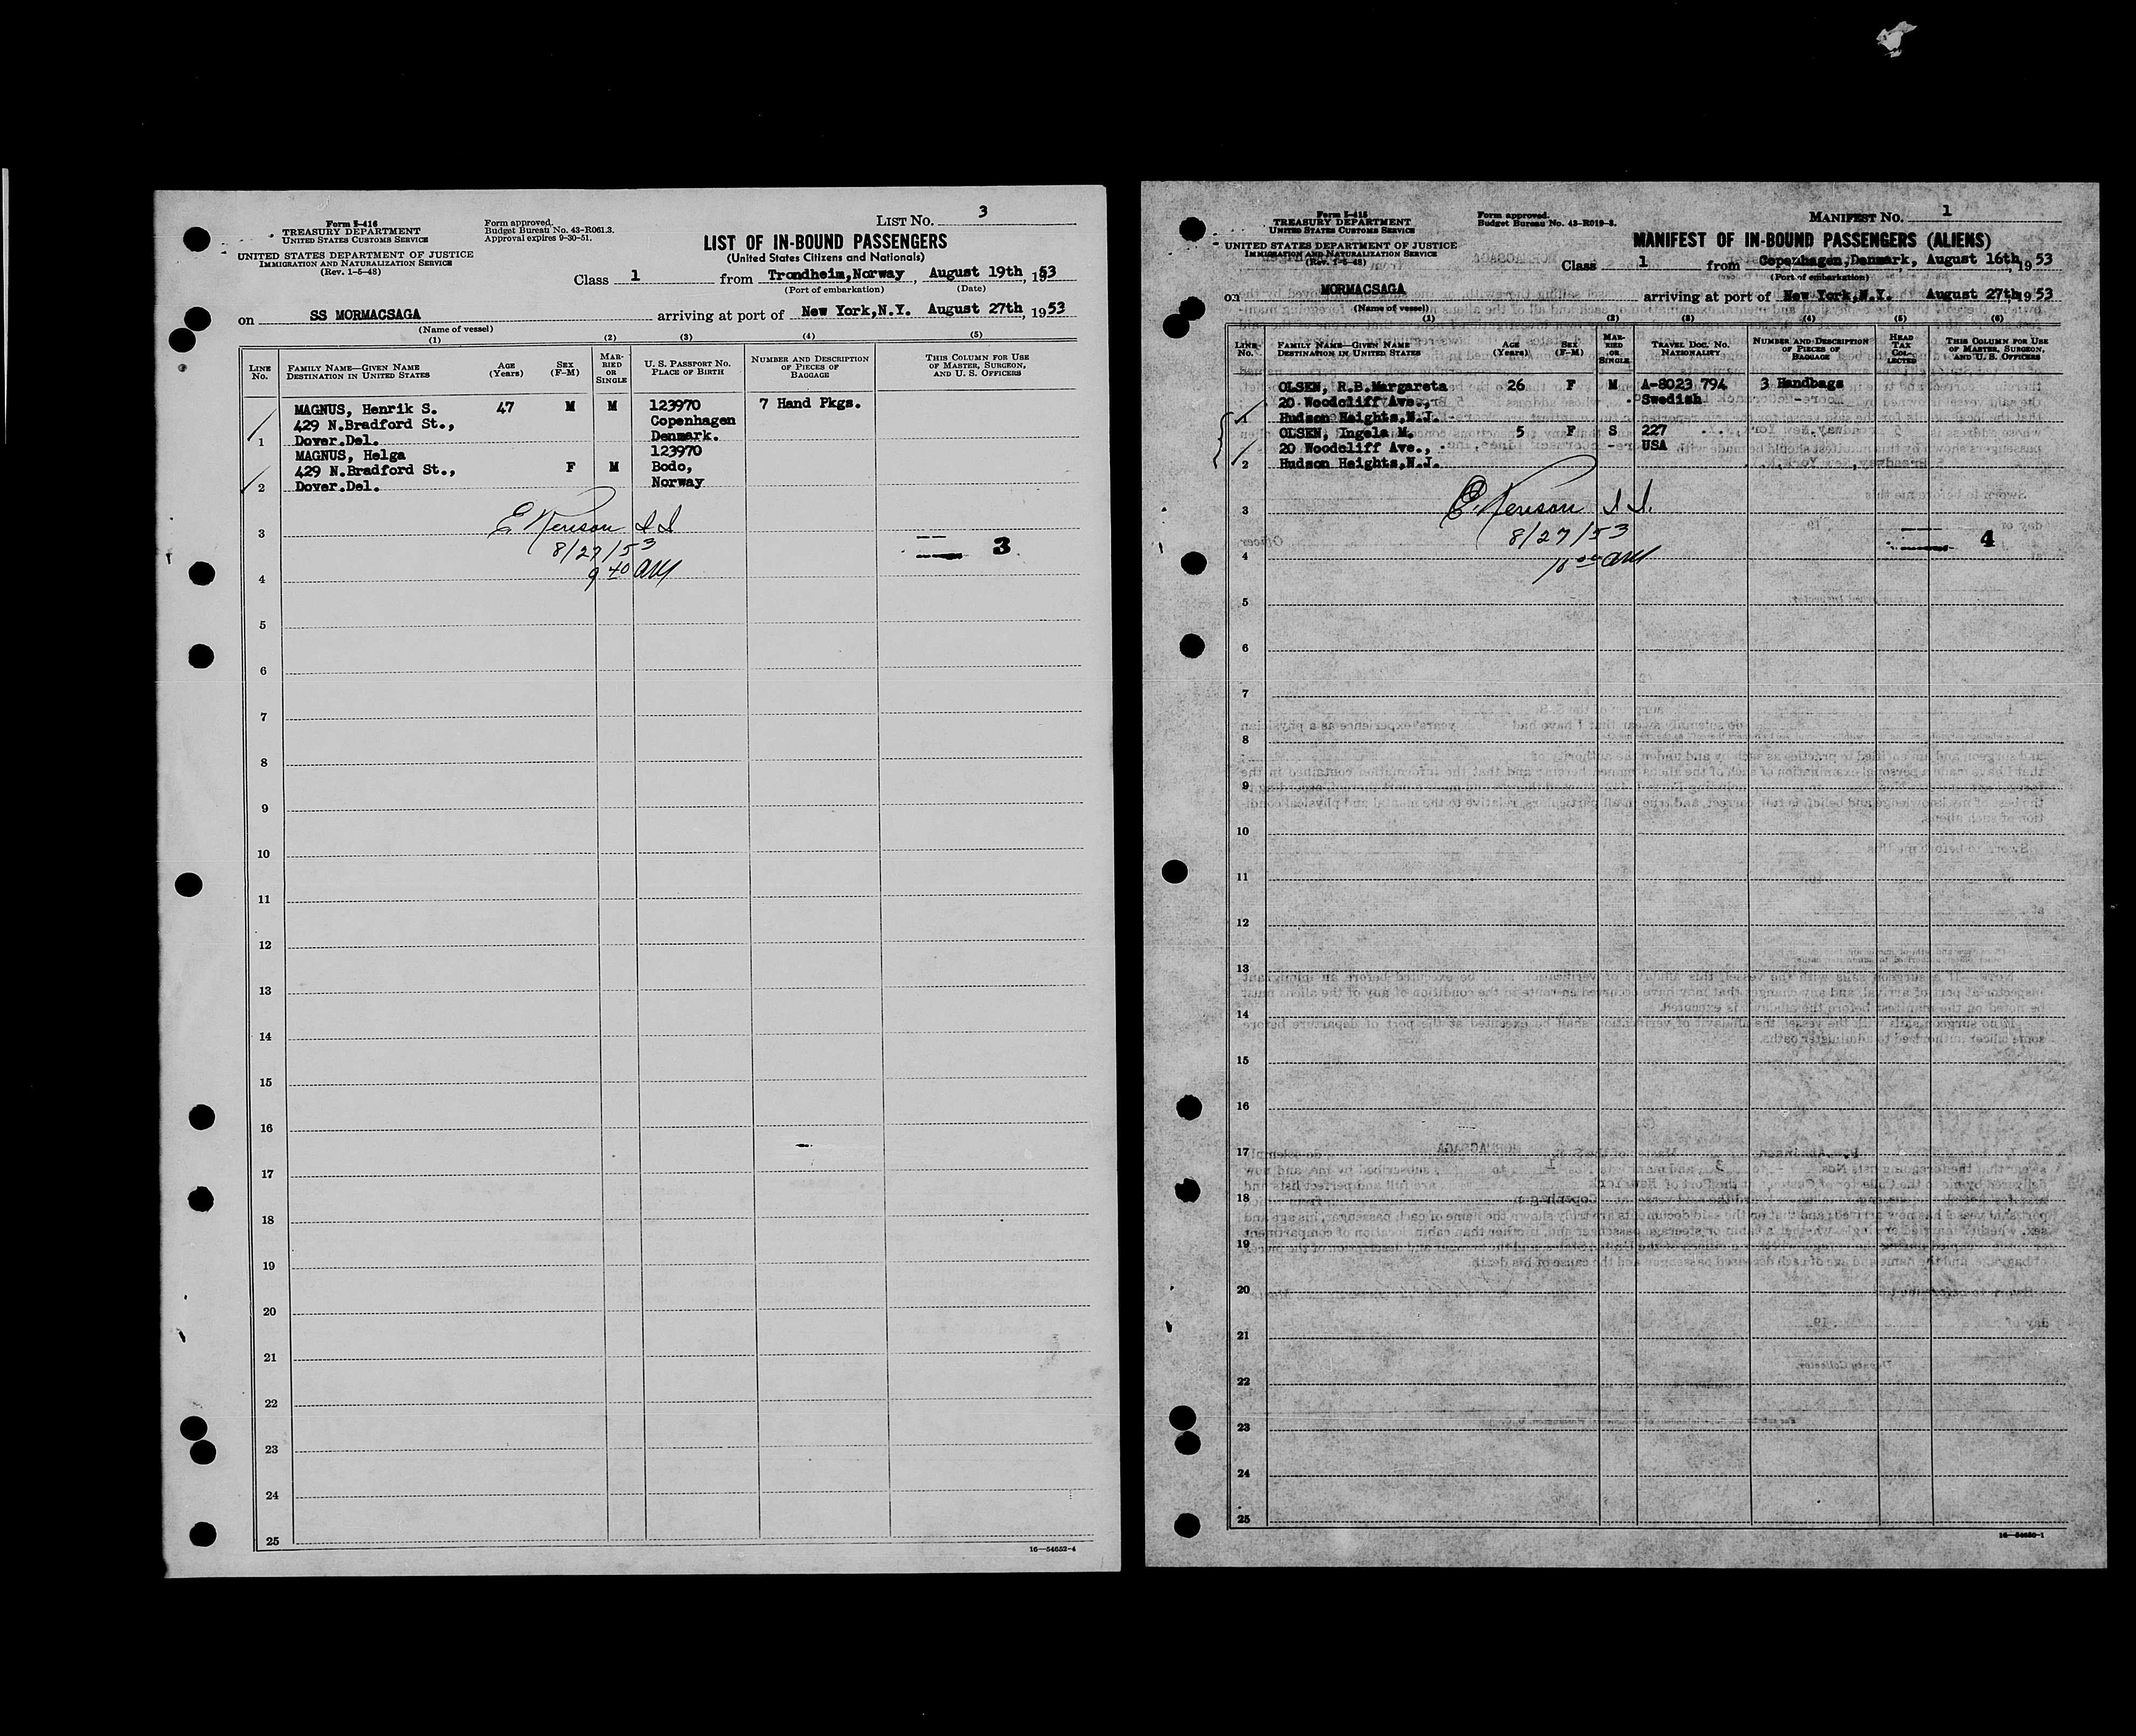 Form I-416
TREASURY DEPARTMENT
UNITED STATES CUSTOMS SERVICE
UNITED STATES DEPARTMENT OF JUSTICE
IMMIGRATION AND NATURALIZATION SERVICE
(Rev. 1-5-48)
Form approved.
Budget Bureau No. 43-R061.3.
Approval expires 9-30-51.
LIST NO. 3
LIST OF IN-BOUND PASSENGERS
(United States Citizens and Nationals)
Class 1 from Trondheim,Norway, August 19th, 1953
(Port of embarkation) (Date)
on SS MORMACSAGA arriving at port of New York,N.Y. August 27th, 1953
(Name of vessel)
(1) (2) (3) (4) (5)
LINE No. FAMILY NAME—GIVEN NAME DESTINATION IN UNITED STATES AGE (Years) SEX (F-M) MARRIED OR SINGLE U. S. PASSPORT NO. PLACE OF BIRTH NUMBER AND DESCRIPTION OF PIECES OF BAGGAGE THIS COLUMN FOR USE OF MASTER, SURGEON, AND U. S. OFFICERS
MAGNUS, Henrik S. 47 M M 123970 7 Hand Pkgs.
429 N.Bradford St., Copenhagen
1 Dover.Del. Denmark.
MAGNUS, Helga 123970
429 N.Bradford St., F M Bodo,
2 Dover.Del. Norway
3
8/27/53
3
4 9 40 AM
5
6
7
8
9
10
11
12
13
14
15
16
17
18
19
20
21
22
23
24
25
16—54652-4
Form I-415
TREASURY DEPARTMENT
UNITED STATES CUSTOMS SERVICE
UNITED STATES DEPARTMENT OF JUSTICE
IMMIGRATION AND NATURALIZATION SERVICE
(Rev. 1-5-48)
Form approved.
Budget Bureau No. 43-R019-3.
MANIFEST NO. 1
MANIFEST OF IN-BOUND PASSENGERS (ALIENS)
Class 1 from Copenhagen,Denmark, August 16th, 1953
(Port of embarkation)
on MORMACSAGA arriving at port of New York,N.Y. August 27th 1953
(Name of vessel)
(1) (2) (3) (4) (5) (6)
LINE No. FAMILY NAME—GIVEN NAME DESTINATION IN UNITED STATES AGE (Years) SEX (F-M) MARRIED OR SINGLE TRAVEL DOC. NO. NATIONALITY NUMBER AND DESCRIPTION OF PIECES OF BAGGAGE HEAD TAX COLLECTED THIS COLUMN FOR USE OF MASTER, SURGEON, AND U. S. OFFICERS
OLSEN, R.B.Margareta 26 F M A-8023 794 3 Handbags
20 Woodcliff Ave., Swedish
1 Hudson Heights,N.J.
OLSEN, Ingela M. 5 F S 227
20 Woodcliff Ave., USA
2 Hudson Heights,N.J.
3
8/27/53
4
4 AM
5
6
7
8
9
10
11
12
13
14
15
16
17
18
19
20
21
22
23
24
25
16—54650-1